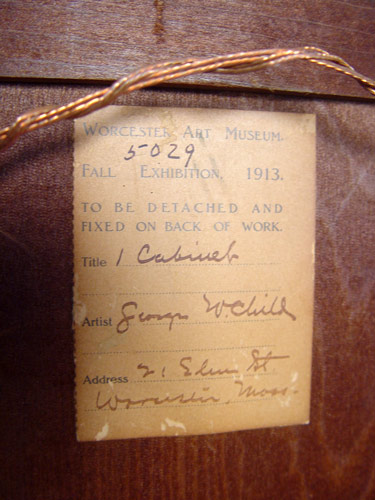 WORCESTER ART MUSEUM.
5029
FALL EXHIBITION, 1913.
TO BE DETACHED AND
FIXED ON BACK OF WORK.
Title 1 Cabinet
Artist George W Child
Address 21 St
Worcester, Mass.